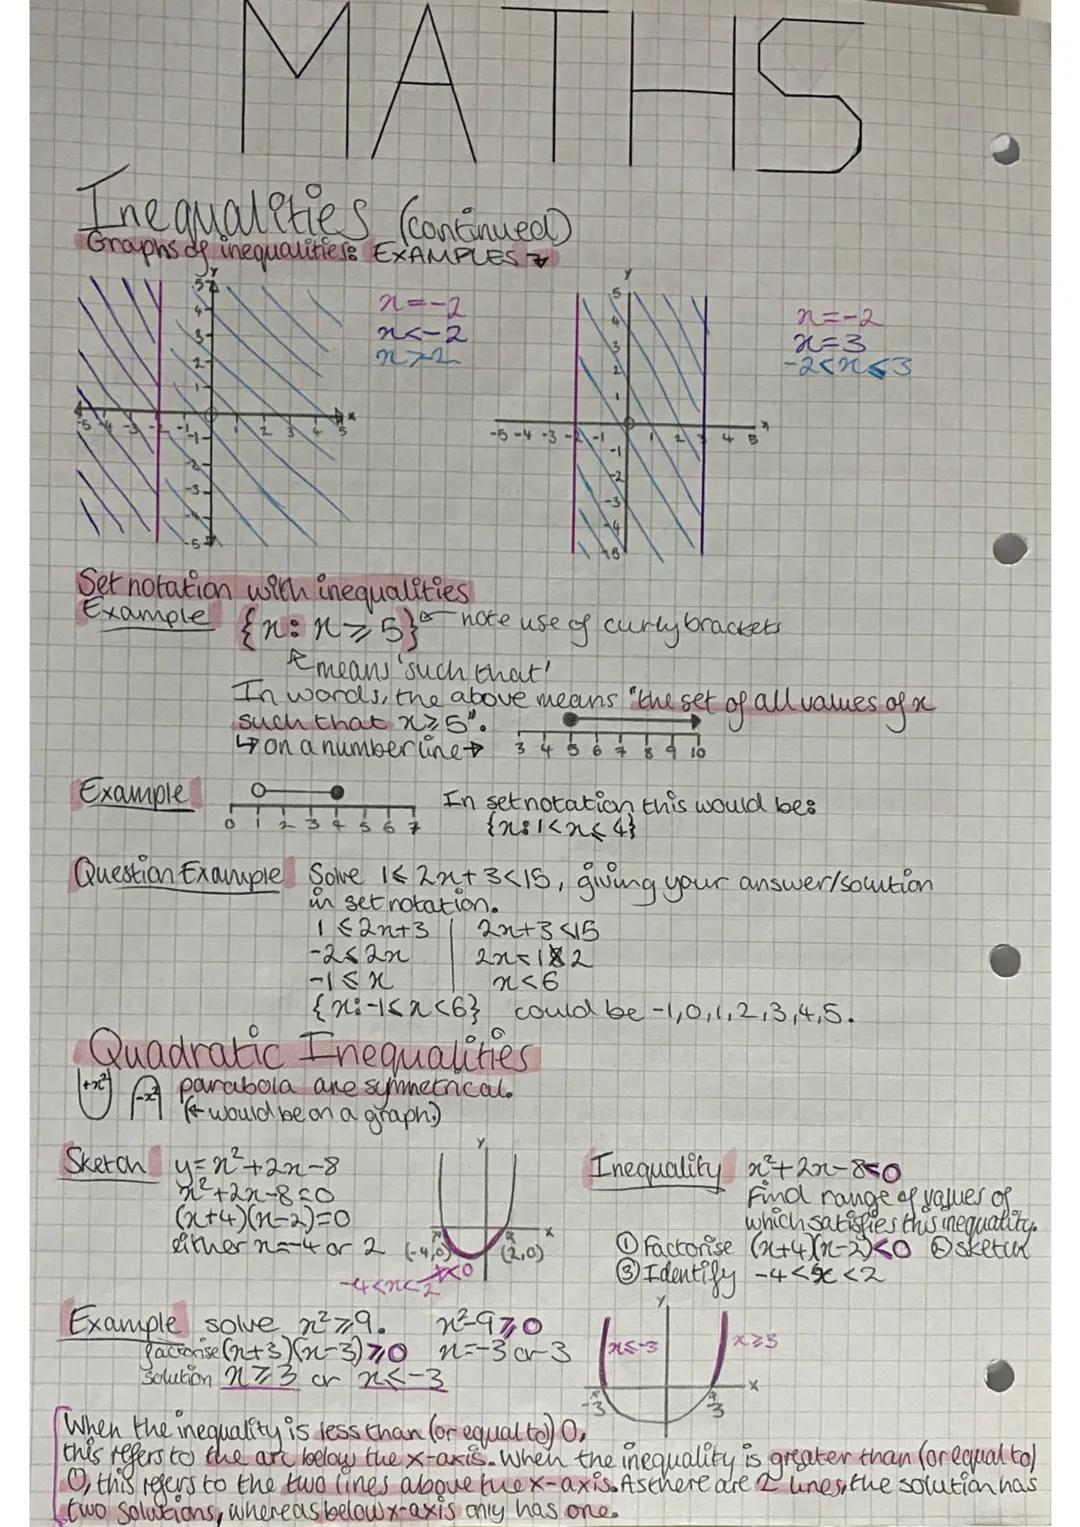 MATHS
Inequalities (continued)
Graphs of inequalities: EXAMPLES
y
x=-2
x<-2
x>2
x
-5 -4 -3 -2 -1 1 2 3 4 5
5
4
3
2
1
-1
-2
-3
-4
-5
y
x=-2
x=3
-2<x≤3
x
-5 -4 -3 -2 -1 1 2 3 4 5
5
4
3
2
1
-1
-2
-3
-4
-5
Set notation with inequalities
Example {x: x≥5} note use of curly brackets
means 'such that'
In words, the above means "the set of all values of x
such that x≥5".
↳ on a number line → 3 4 5 6 7 8 9 10
Example In set notation this would be:
0 1 2 3 4 5 6 7 {x: 1<x≤4}
Question Example Solve 1≤2x+3<15, giving your answer/solution
in set notation.
1≤2x+3 | 2x+3<15
-2≤2x | 2x<12
-1≤x | x<6
{x: -1≤x<6} could be -1,0,1,2,3,4,5.
Quadratic Inequalities
+x² -x² parabola are symmetrical.
(← would be on a graph)
Sketch y=x²+2x-8
x²+2x-8=0
(x+4)(x-2)=0
either x=-4 or 2
y
x
(-4,0) (2,0)
-4<x<2 x<0
Inequality x²+2x-8<0
Find range of values of
which satisfies this inequality.
① Factorise (x+4)(x-2)<0 ② sketch
③ Identify -4<x<2
Example solve x²≥9. x²-9≥0
factorise (x+3)(x-3)≥0 x=-3 or 3
solution x≥3 or x≤-3
y
x≤-3 x≥3
x
-3 3
When the inequality is less than (or equal to) 0,
this refers to the arc below the x-axis. When the inequality is greater than (or equal to)
0, this refers to the two lines above the x-axis. As there are 2 lines, the solution has
two solutions, whereas below x-axis only has one.